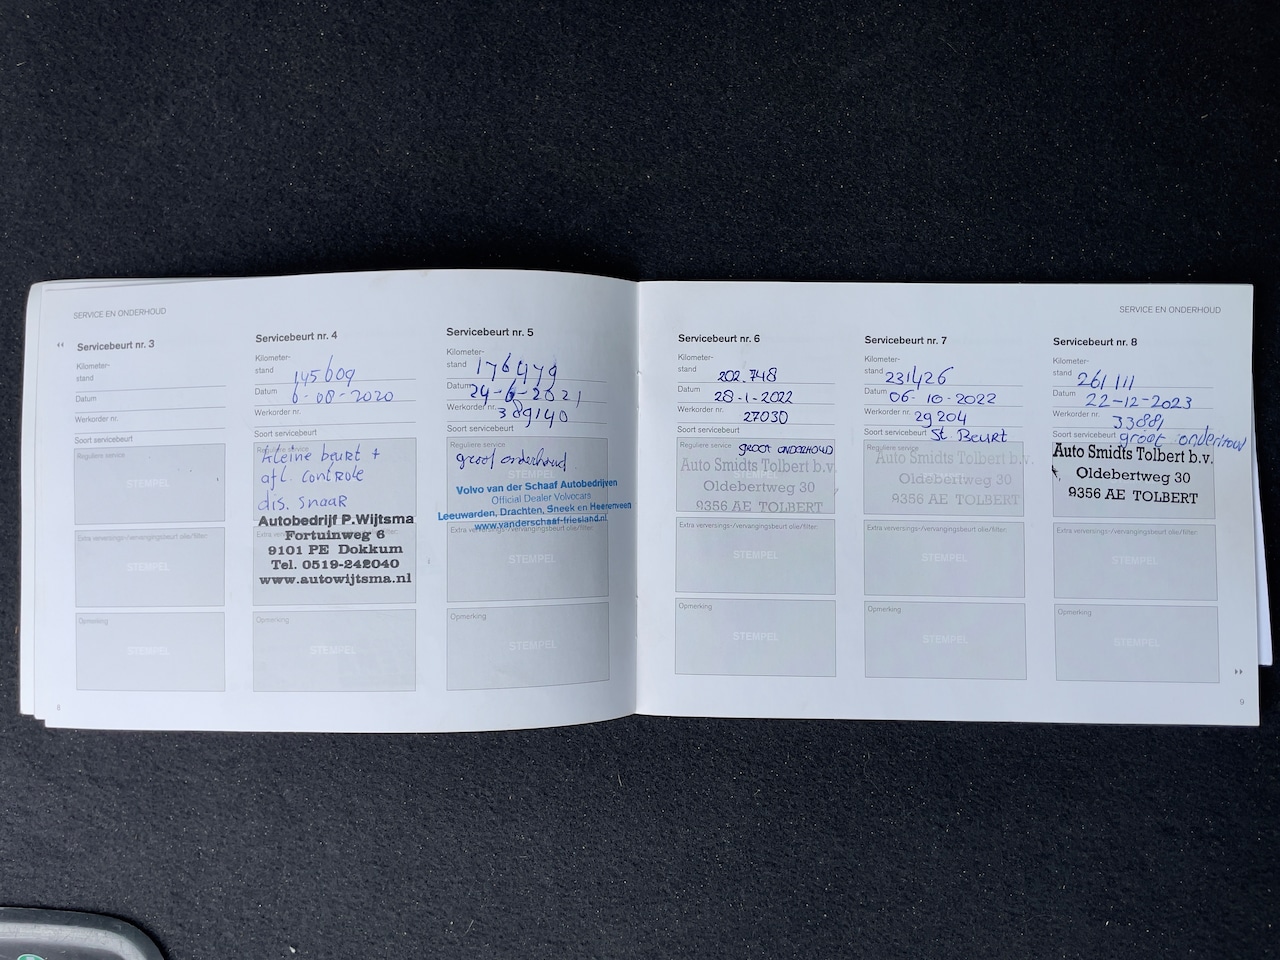 SERVICE EN ONDERHOUD
Servicebeurt nr. 3
Kilometer-
stand
Datum
Werkorder nr.
Soort servicebeurt
Reguliere service
STEMPEL
Extra verversings-/vervangingsbeurt olie/filter:
STEMPEL
Opmerking
STEMPEL
8
Servicebeurt nr. 4
Kilometer-
stand 145609
Datum 6-08-2020
Werkorder nr.
Soort servicebeurt
Reguliere service
kleine beurt +
afl. controle
dis. snaar
Autobedrijf P.Wijtsma
Fortuinweg 6
9101 PE Dokkum
Tel. 0519-242040
www.autowijtsma.nl
Opmerking
STEMPEL
Servicebeurt nr. 5
Kilometer-
stand 176479
Datum 24-6-2021
Werkorder nr. 389140
Soort servicebeurt
Reguliere service
groot onderhoud
STEMPEL
Volvo van der Schaaf Autobedrijven
Official Dealer Volvocars
Leeuwarden, Drachten, Sneek en Heerenveen
www.vanderschaaf-friesland.nl
Extra verversings-/vervangingsbeurt olie/filter:
STEMPEL
Opmerking
STEMPEL
SERVICE EN ONDERHOUD
Servicebeurt nr. 6
Kilometer-
stand 202.748
Datum 28-1-2022
Werkorder nr. 27030
Soort servicebeurt
Reguliere service groot ONDERHOUD
Auto Smidts Tolbert b.v.
Oldebertweg 30
9356 AE TOLBERT
Extra verversings-/vervangingsbeurt olie/filter:
STEMPEL
Opmerking
STEMPEL
Servicebeurt nr. 7
Kilometer-
stand 231426
Datum 06-10-2022
Werkorder nr. 29204
Soort servicebeurt St. Beurt
Reguliere service
Auto Smidts Tolbert b.v.
Oldebertweg 30
9356 AE TOLBERT
Extra verversings-/vervangingsbeurt olie/filter:
STEMPEL
Opmerking
STEMPEL
Servicebeurt nr. 8
Kilometer-
stand 261111
Datum 22-12-2023
Werkorder nr. 33881
Soort servicebeurt groot onderhoud
Auto Smidts Tolbert b.v.
Oldebertweg 30
9356 AE TOLBERT
Extra verversings-/vervangingsbeurt olie/filter:
STEMPEL
Opmerking
STEMPEL
9